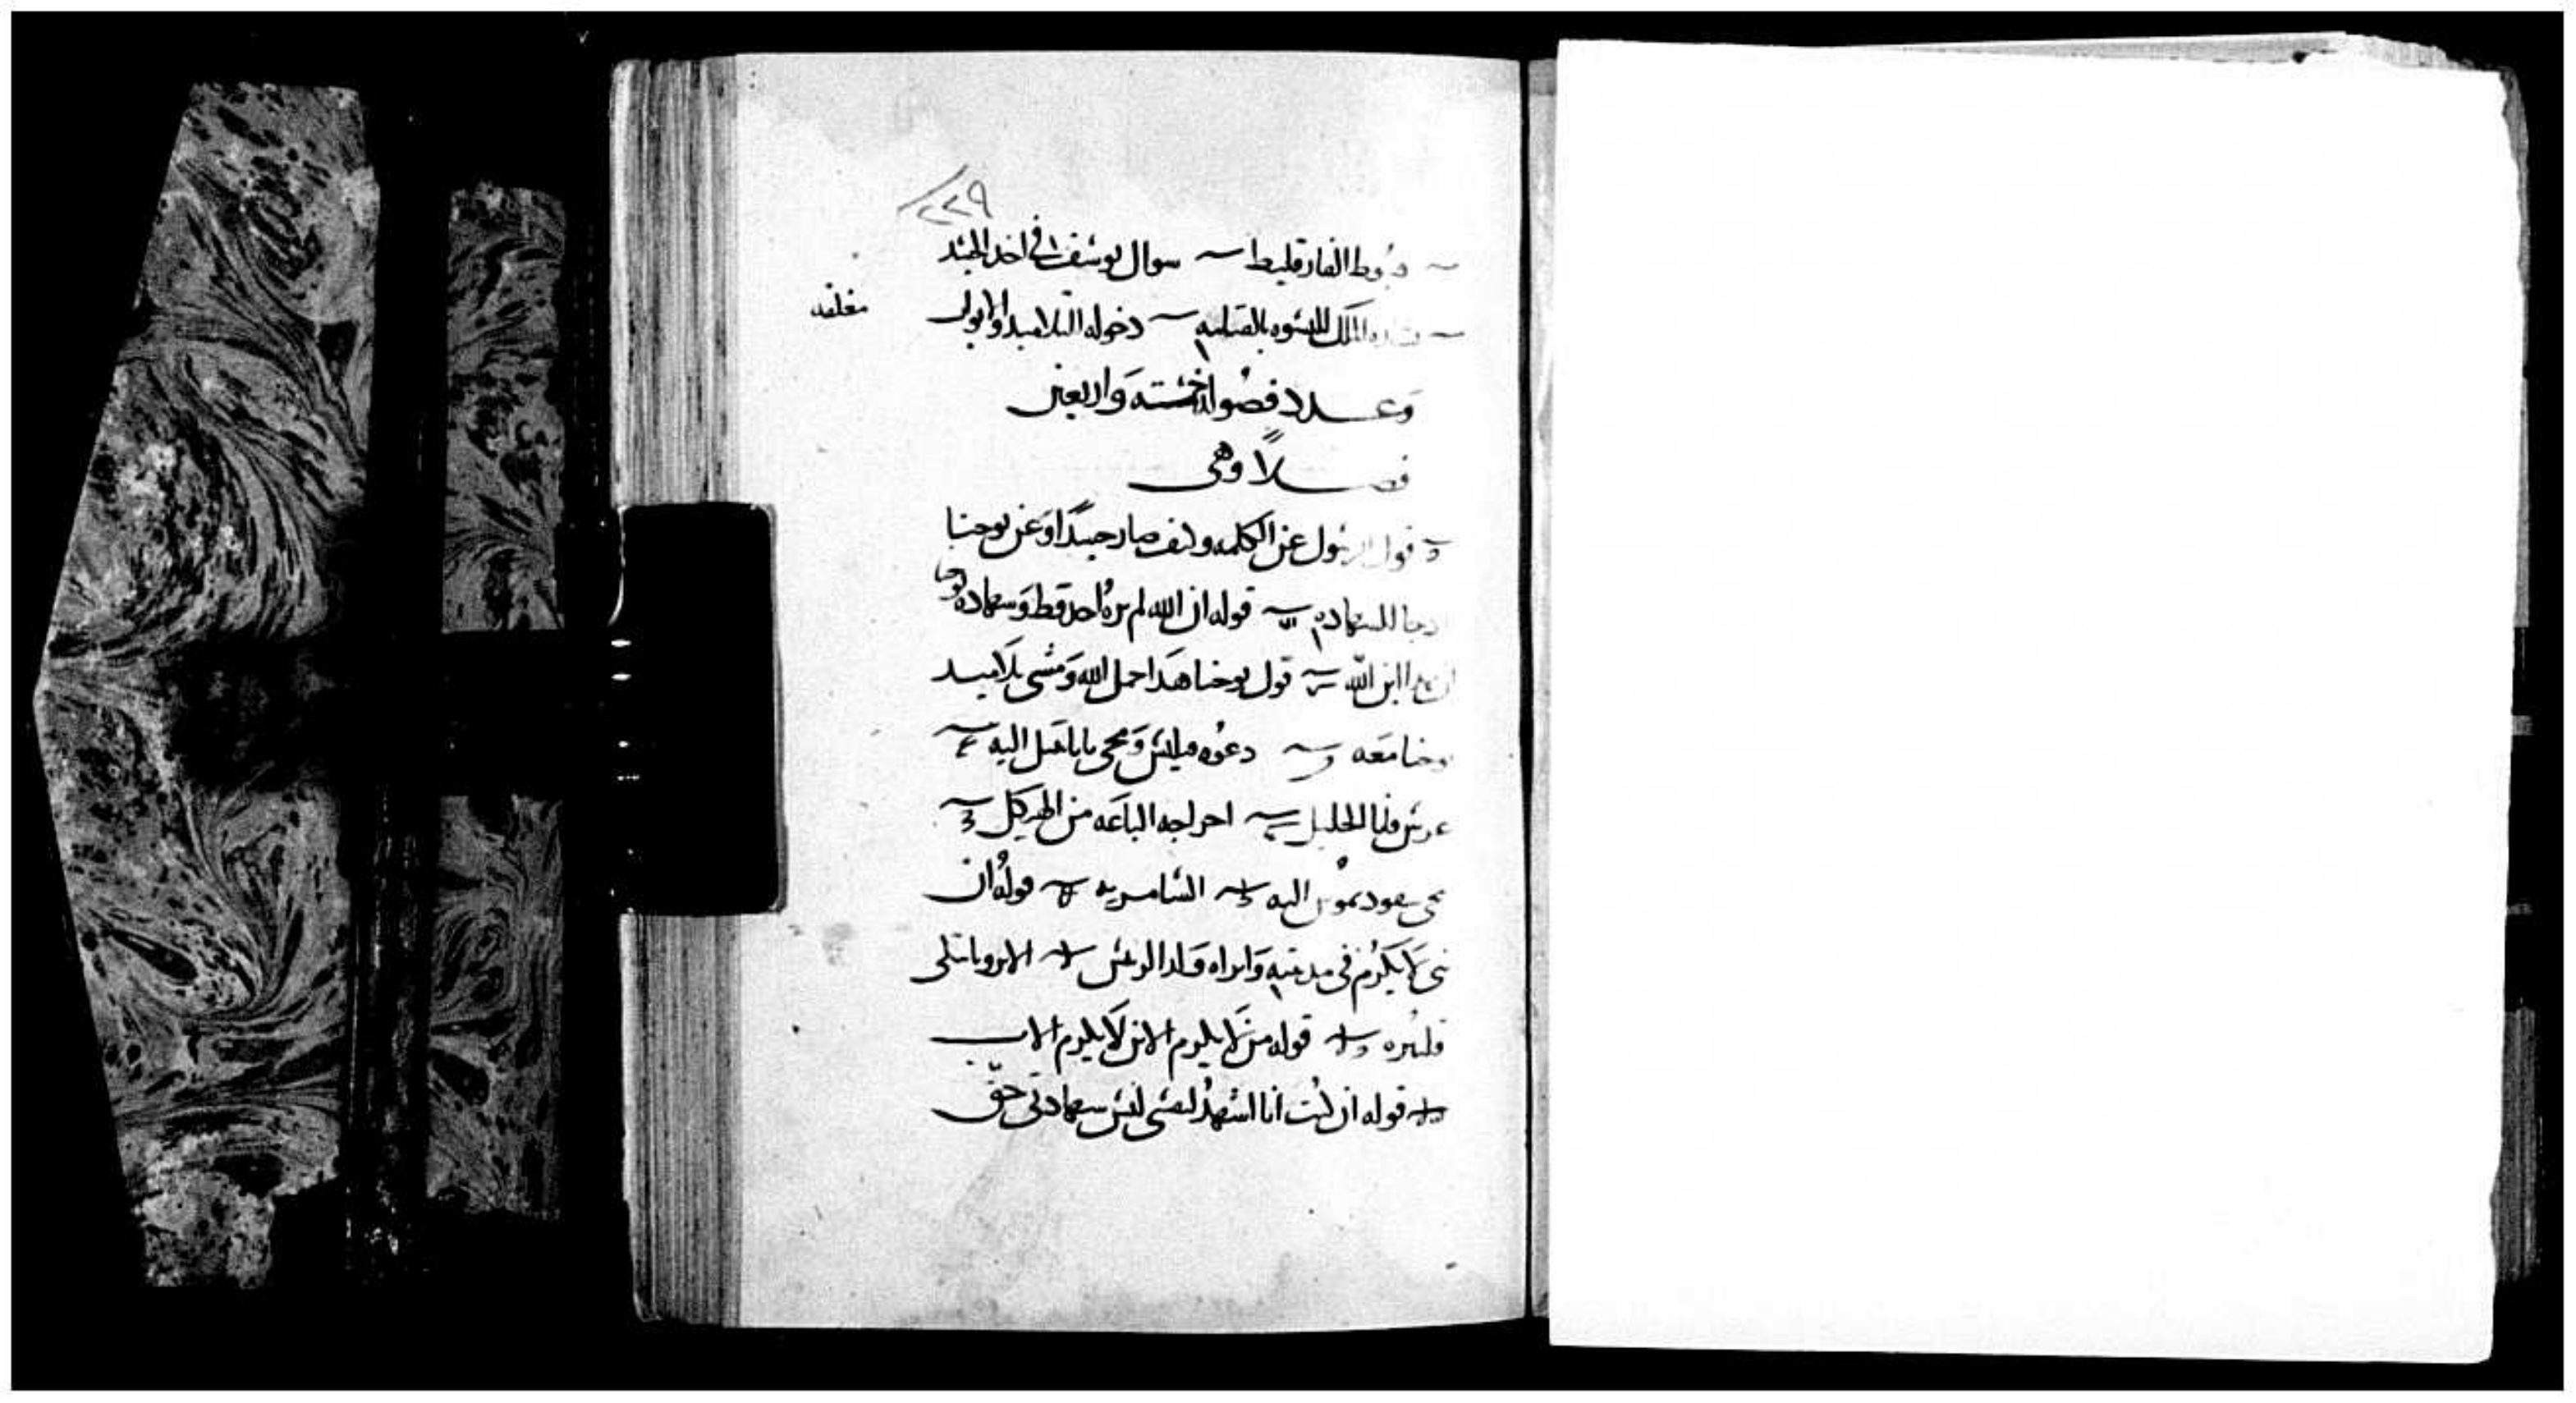 ٢٢٩
هبوط الفارقليط سوال يوسف في اخد الجسد
الملك للنسوه بالقيامه دخوله التلاميد والابواب
مغلقه
وعدد فصوله خمسه واربعين
فصلاً وهى
قول الرسول عن الكلمه وكيف صار جسداً وعن يوحنا
جا للشهاده قوله ان الله لم يره احد قط وشهادة يوحنا
ان هدا ابن الله قول يوحنا هدا حمل الله ومشي تلاميد
يوحنا معه دعوه فيلبس ومجى ناتانيل اليه
عرس قانا الجليل اخراجه الباعه من الهيكل
مجى نيقوديموس اليه السامريه قوله ان
نبى لا يكرم فى مدينته وابراه ولد الرعيس الابروباتيكى
قوله من لا يكرم الابن لا يكرم الاب
قوله ان كنت انا اشهد لنفسى ليس شهادتى حق